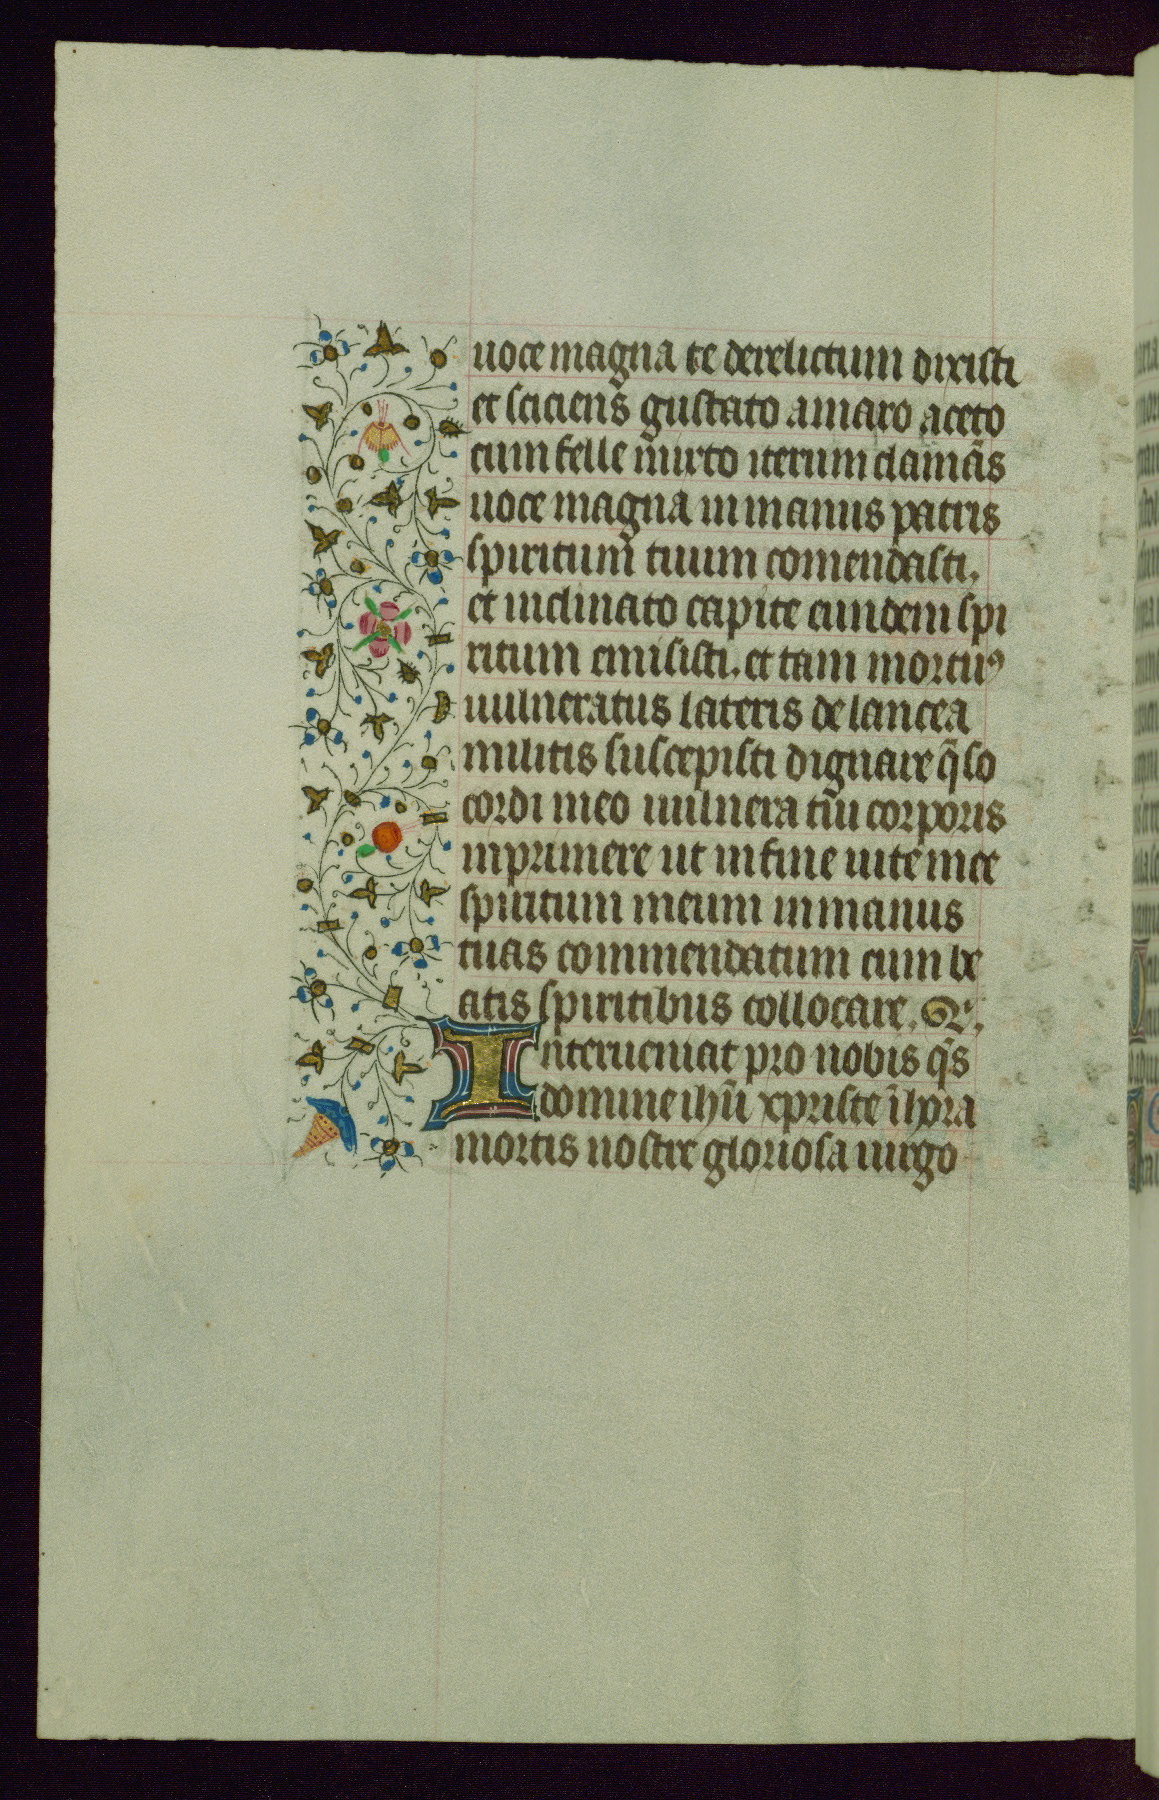 uoce magna te derelictum dixisti
et sciciens gustato amaro aceto
cum felle mirto iterum clamãs
uoce magna in manus patris
spiritum tuum comendasti.
et inclinato capite eundem spi
ritum emisisti. et tam mortuꝰ
uulneratus lateris de lancea
militis suscepisti dignare q̃so
cordi meo uulnera tũi corporis
inprimere ut in fine uite mee
spiritum meum in manus
tuas commendatum cum be
atis spiritibus collocare.
Interueniat pro nobis q̃s
domine ihũ xpriste ĩ hora
mortis nostre gloriosa uirgo